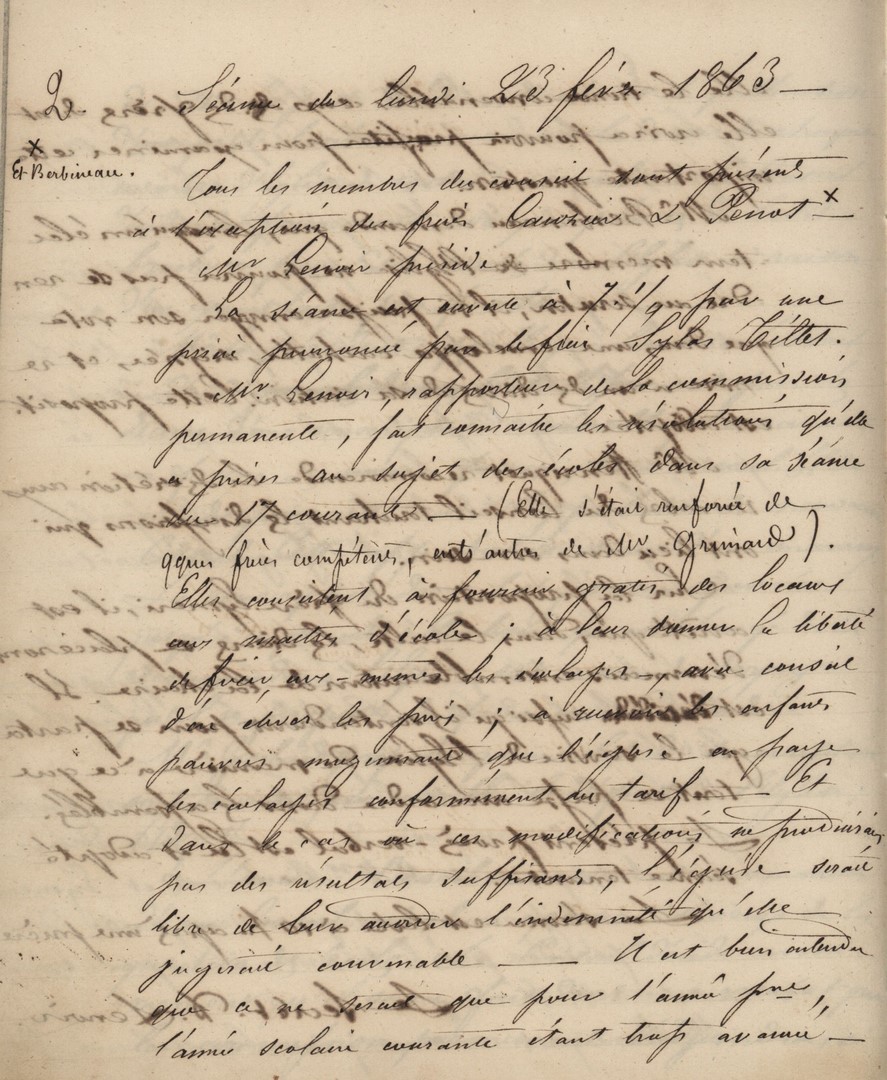 2 Séance du lundi 23 févr 1863 —
x
Et Berbineau.
Tous les membres du conseil sont présents
à l'exception des frères Cauzier & Penot x —
Mr Lenoir préside
La séance est ouverte à 7 1/2 par une
prière prononcée par le frère Sylas Tillet.
Mr. Lenoir, rapporteur de la commission
permanente, fait connaître les résolutions qu'elle
a prises au sujet des écoles dans sa séance
du 17 courant — (Elle s'était renforcée de
qques frères compétents, entr'autres de Mr Grimard).
Elles consistent, à fournir gratis des locaux
aux maitres d'école ; à leur donner la liberté
de fixer eux-mêmes les écolages —, avec conseil
d'en élever les prix ; à recevoir les enfants
pauvres moyennant que l'église en paye
les écolages conformément au tarif — Et
dans le cas où ces modifications ne produiraient
pas des résultats suffisants, l'église serait
libre de leur accorder l'indemnité qu'elle
jugerait convenable — Il est bien entendu
que ce ne serait que pour l'année pne,
l'année scolaire courante étant trop avancée —